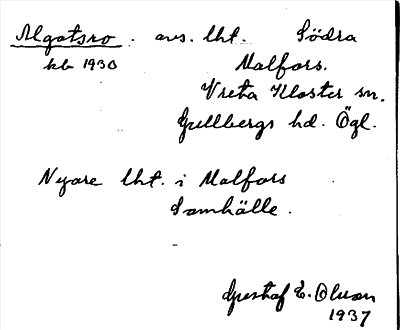 Algotsro. avs. lht. Södra
kb 1930 Malfors.
Vreta Kloster sn.
Gullbergs hd. Ögl.
Nyare lht. i Malfors
Samhälle.
Gustaf E. Olson
1937